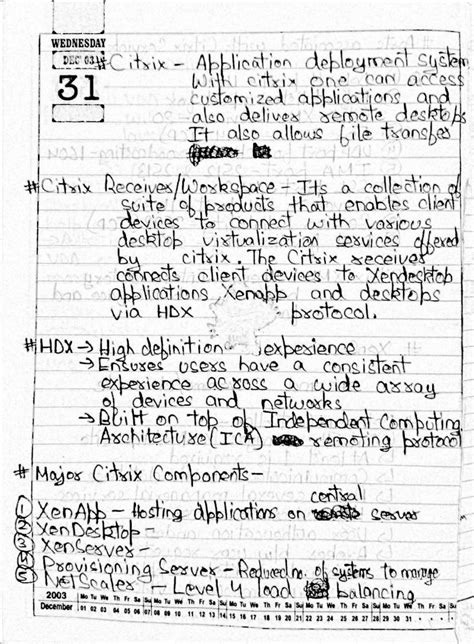 WEDNESDAY
DEC 03
31
# Citrix - Application deployment system
With citrix one can access
customized applications, and
also deliver remote desktops
It also allows file transfer
# Citrix Receiver/Workspace - Its a collection of
suite of products that enables client
devices to connect with various
desktop virtualization services offered
by citrix. The Citrix receiver
connects client devices to Xendesktop
applications, Xenapp and desktops
via HDX protocol.
# HDX → High definition experience
→ Ensures users have a consistent
experience across a wide array
of devices and networks
→ Built on top of Independent Computing
Architecture (ICA) remoting protocol
# Major Citrix Components -
① XenApp - Hosting applications on central server
② XenDesktop -
③ XenServer -
④ Provisioning Server - Reduced no. of systems to manage
⑤ NetScaler - Level 4 load balancing
2003 Mo Tu We Th Fr Sa Su Mo Tu We Th Fr Sa Su Mo Tu We Th Fr Sa Su Mo Tu We Th Fr Sa Su Mo Tu We
December 01 02 03 04 05 06 07 08 09 10 11 12 13 14 15 16 17 18 19 20 21 22 23 24 25 26 27 28 29 30 31